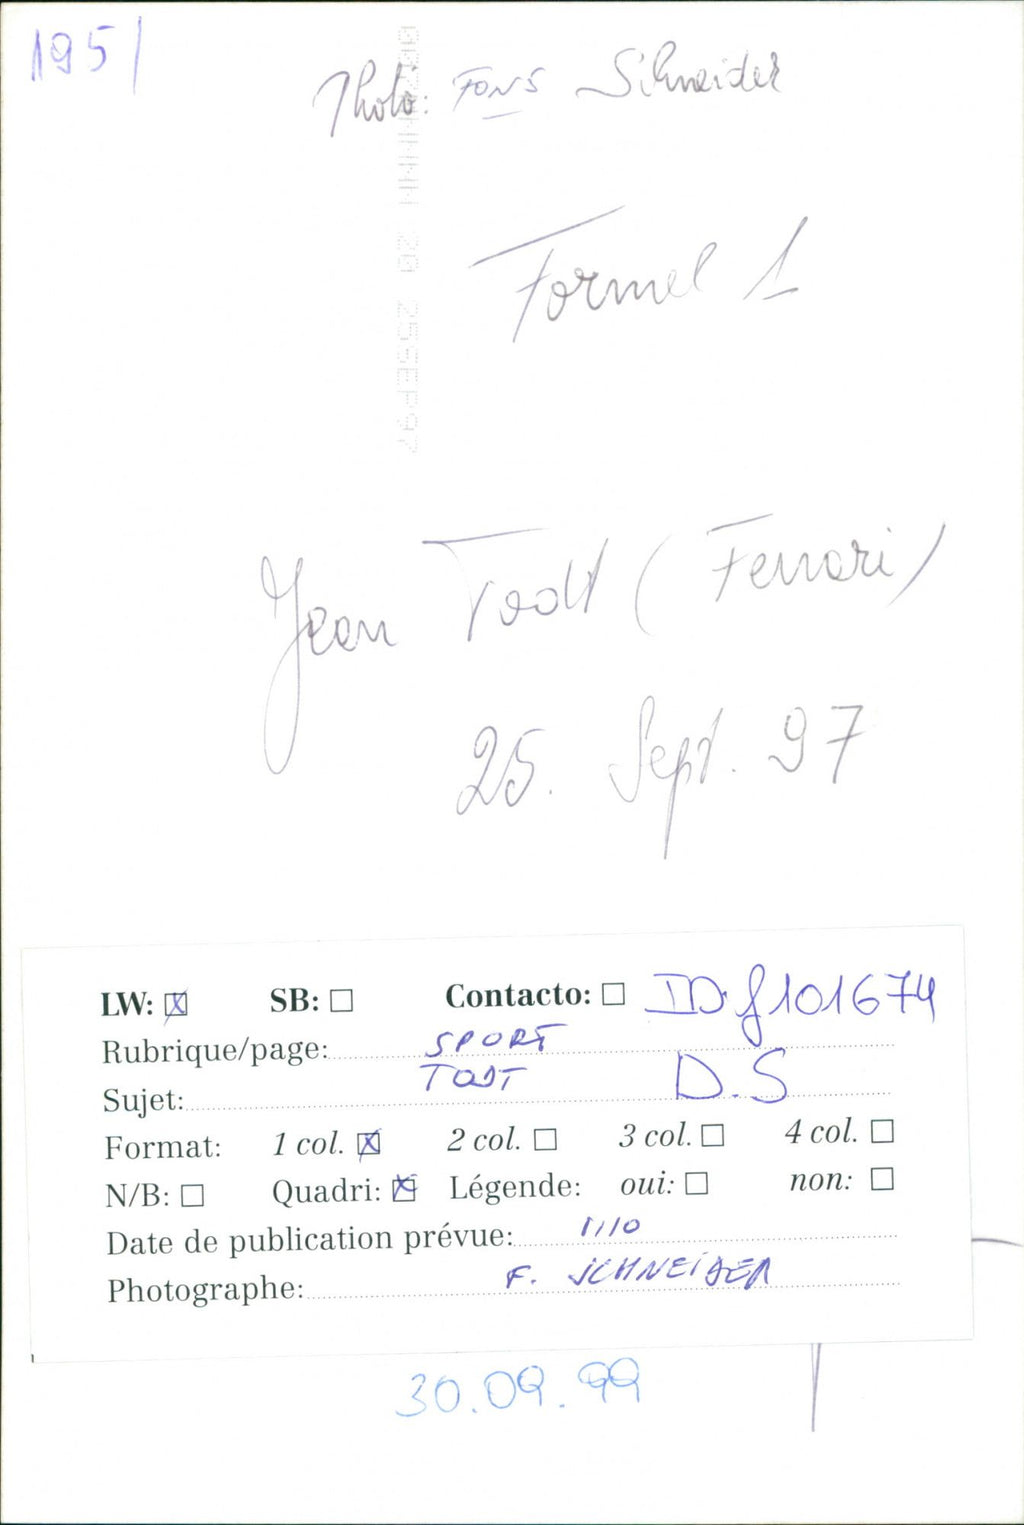 195/
Photo: FONS Schneider
Formel 1
25SEP97
Jean Todt (Ferrari)
25. Sept. 97
LW: ☒ SB: ☐ Contacto: ☐ ID:f101674
Rubrique/page: SPORT
Sujet: TODT D.S
Format: 1 col. ☒ 2 col. ☐ 3 col. ☐ 4 col. ☐
N/B: ☐ Quadri: ☒ Légende: oui: ☐ non: ☐
Date de publication prévue: 1/10
Photographe: F. SCHNEIDER
30.09.99